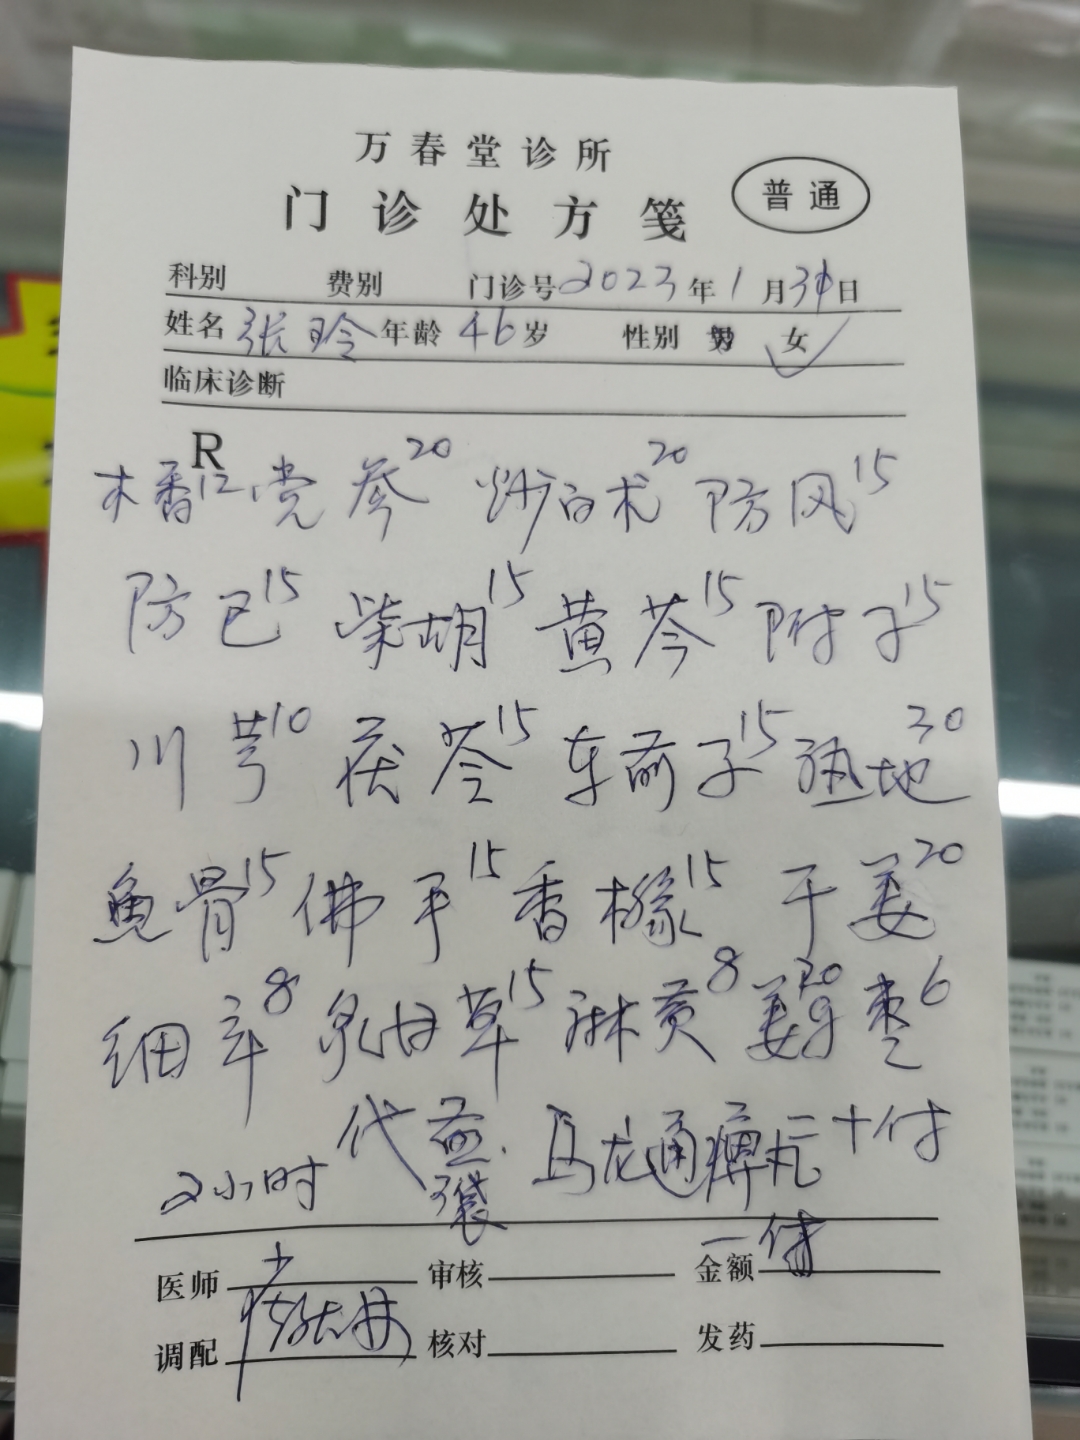 万春堂诊所
门诊处方笺 普通
科别 费别 门诊号 2023年1月31日
姓名 张玲 年龄 46岁 性别 男 女✓
临床诊断
R
木香12 党参20 炒白术20 防风15
防己15 柴胡15 黄芩15 附子15
川芎10 茯苓15 车前子15 熟地30
鱼骨15 佛手15 香橼15 干姜20
细辛8 炙甘草15 麻黄8 姜20 枣6
代煎 马龙通痹丸 十付
2小时 袋 一付
医师 审核 金额
调配 核对 发药